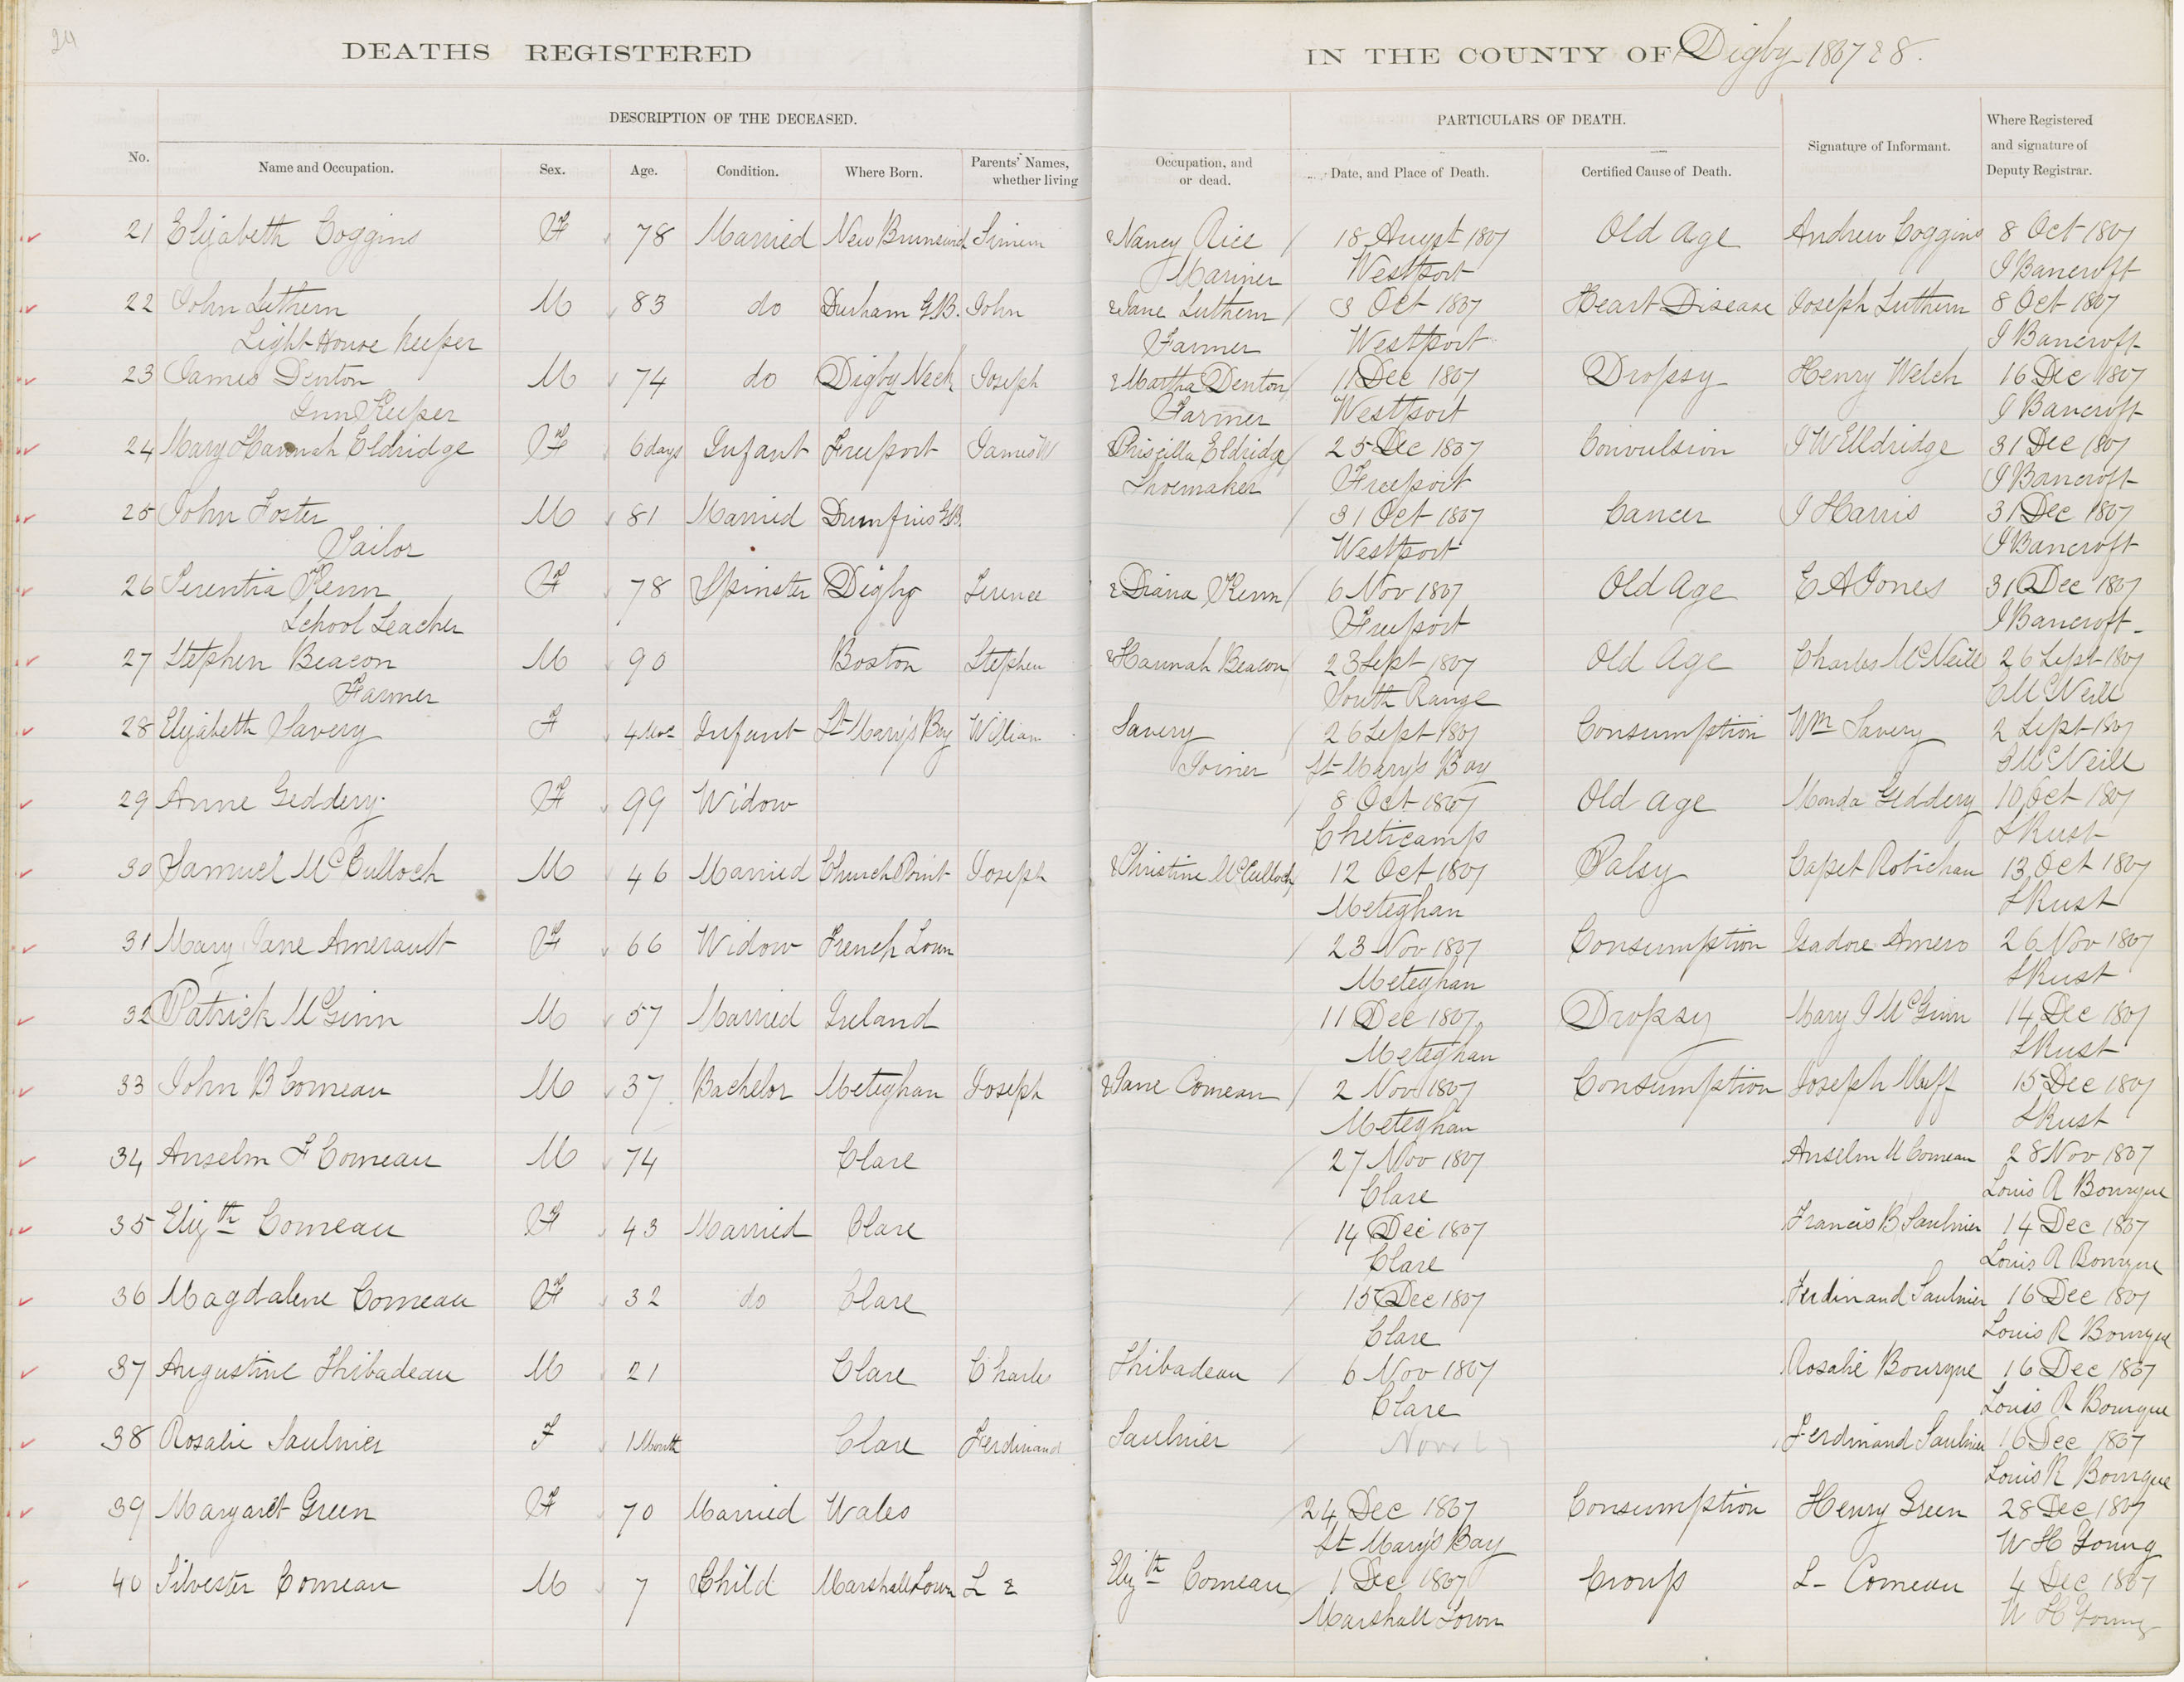 24
DEATHS REGISTERED IN THE COUNTY OF Digby 1867 & 8.
DESCRIPTION OF THE DECEASED. PARTICULARS OF DEATH.
No. Name and Occupation. Sex. Age. Condition. Where Born. Parents' Names, whether living Occupation, and or dead. Date, and Place of Death. Certified Cause of Death. Signature of Informant. Where Registered and signature of Deputy Registrar.
21 Elizabeth Coggins F 78 Married New Brunswick & Nancy Rice 18 August 1867 Old Age Andrew Coggins 8 Oct 1867
Mariner Westport J Bancroft
22 John Luthern M 83 do Durham G.B. John & Jane Luthern 3 Oct 1867 Heart Disease Joseph Luthern 8 Oct 1867
Light House Keeper Farmer Westport J Bancroft
23 James Denton M 74 do Digby Neck Joseph & Martha Denton 11 Dec 1867 Dropsy Henry Welch 16 Dec 1867
Inn Keeper Farmer Westport J Bancroft
24 Mary Hannah Eldridge F 6 days Infant Freeport James W Priscilla Eldridge 25 Dec 1867 Convulsion J W Elldridge 31 Dec 1867
Shoemaker Freeport J Bancroft
25 John Foster M 81 Married Dumfries G.B. 31 Oct 1867 Cancer J Harris 31 Dec 1867
Sailor Westport J Bancroft
26 Terentia Kenn F 78 Spinster Digby Terence & Diana Kenn 6 Nov 1867 Old Age E A Jones 31 Dec 1867
School Teacher Freeport J Bancroft
27 Stephen Beacon M 90 Boston Stephen & Hannah Beacon 23 Sept 1867 Old Age Charles McNeill 26 Sept 1867
Farmer South Range C McNeill
28 Elizabeth Savery F 4 Mos Infant St Mary's Bay William Savery 26 Sept 1867 Consumption Wm Savery 2 Sept 1867
Joiner St Mary's Bay McNeill
29 Anne Geddery F 99 Widow 8 Oct 1867 Old Age Monda Geddery 10 Oct 1867
Cheticamp S Rust
30 Samuel McCulloch M 46 Married Church Point Joseph & Christine McCulloch 12 Oct 1867 Palsy Capet Robichau 13 Oct 1867
Meteghan S Rust
31 Mary Jane Amerault F 66 Widow French Town 23 Nov 1867 Consumption Isadore Amero 26 Nov 1867
Meteghan S Rust
32 Patrick McGinn M 57 Married Ireland 11 Dec 1867 Dropsy Mary J McGinn 14 Dec 1867
Meteghan S Rust
33 John B Comeau M 37 Bachelor Meteghan Joseph & Jane Comeau 2 Nov 1867 Consumption Joseph 15 Dec 1867
Meteghan S Rust
34 Anselm F Comeau M 74 Clare 27 Nov 1867 Anselm M Comeau 28 Nov 1867
Clare Louis A Bourque
35 Elizth Comeau F 43 Married Clare 14 Dec 1867 Francis B Saulnier 14 Dec 1867
Clare Louis A Bourque
36 Magdalene Comeau F 32 do Clare 15 Dec 1867 Ferdinand Saulnier 16 Dec 1867
Clare Louis R Bourque
37 Augustine Thibadeau M 21 Clare Charles Thibadeau 6 Nov 1867 Rosalie Bourque 16 Dec 1867
Clare Louis R Bourque
38 Rosalie Saulnier F 1 Month Clare Ferdinand Saulnier Ferdinand Saulnier 16 Dec 1867
Louis R Bourque
39 Margaret Green F 70 Married Wales 24 Dec 1867 Consumption Henry Green 28 Dec 1867
St Mary's Bay W H Young
40 Silvester Comeau M 7 Child Marshall Town L & Elizth Comeau 1 Dec 1867 Croup L- Comeau 4 Dec 1867
Marshall Town W H Young